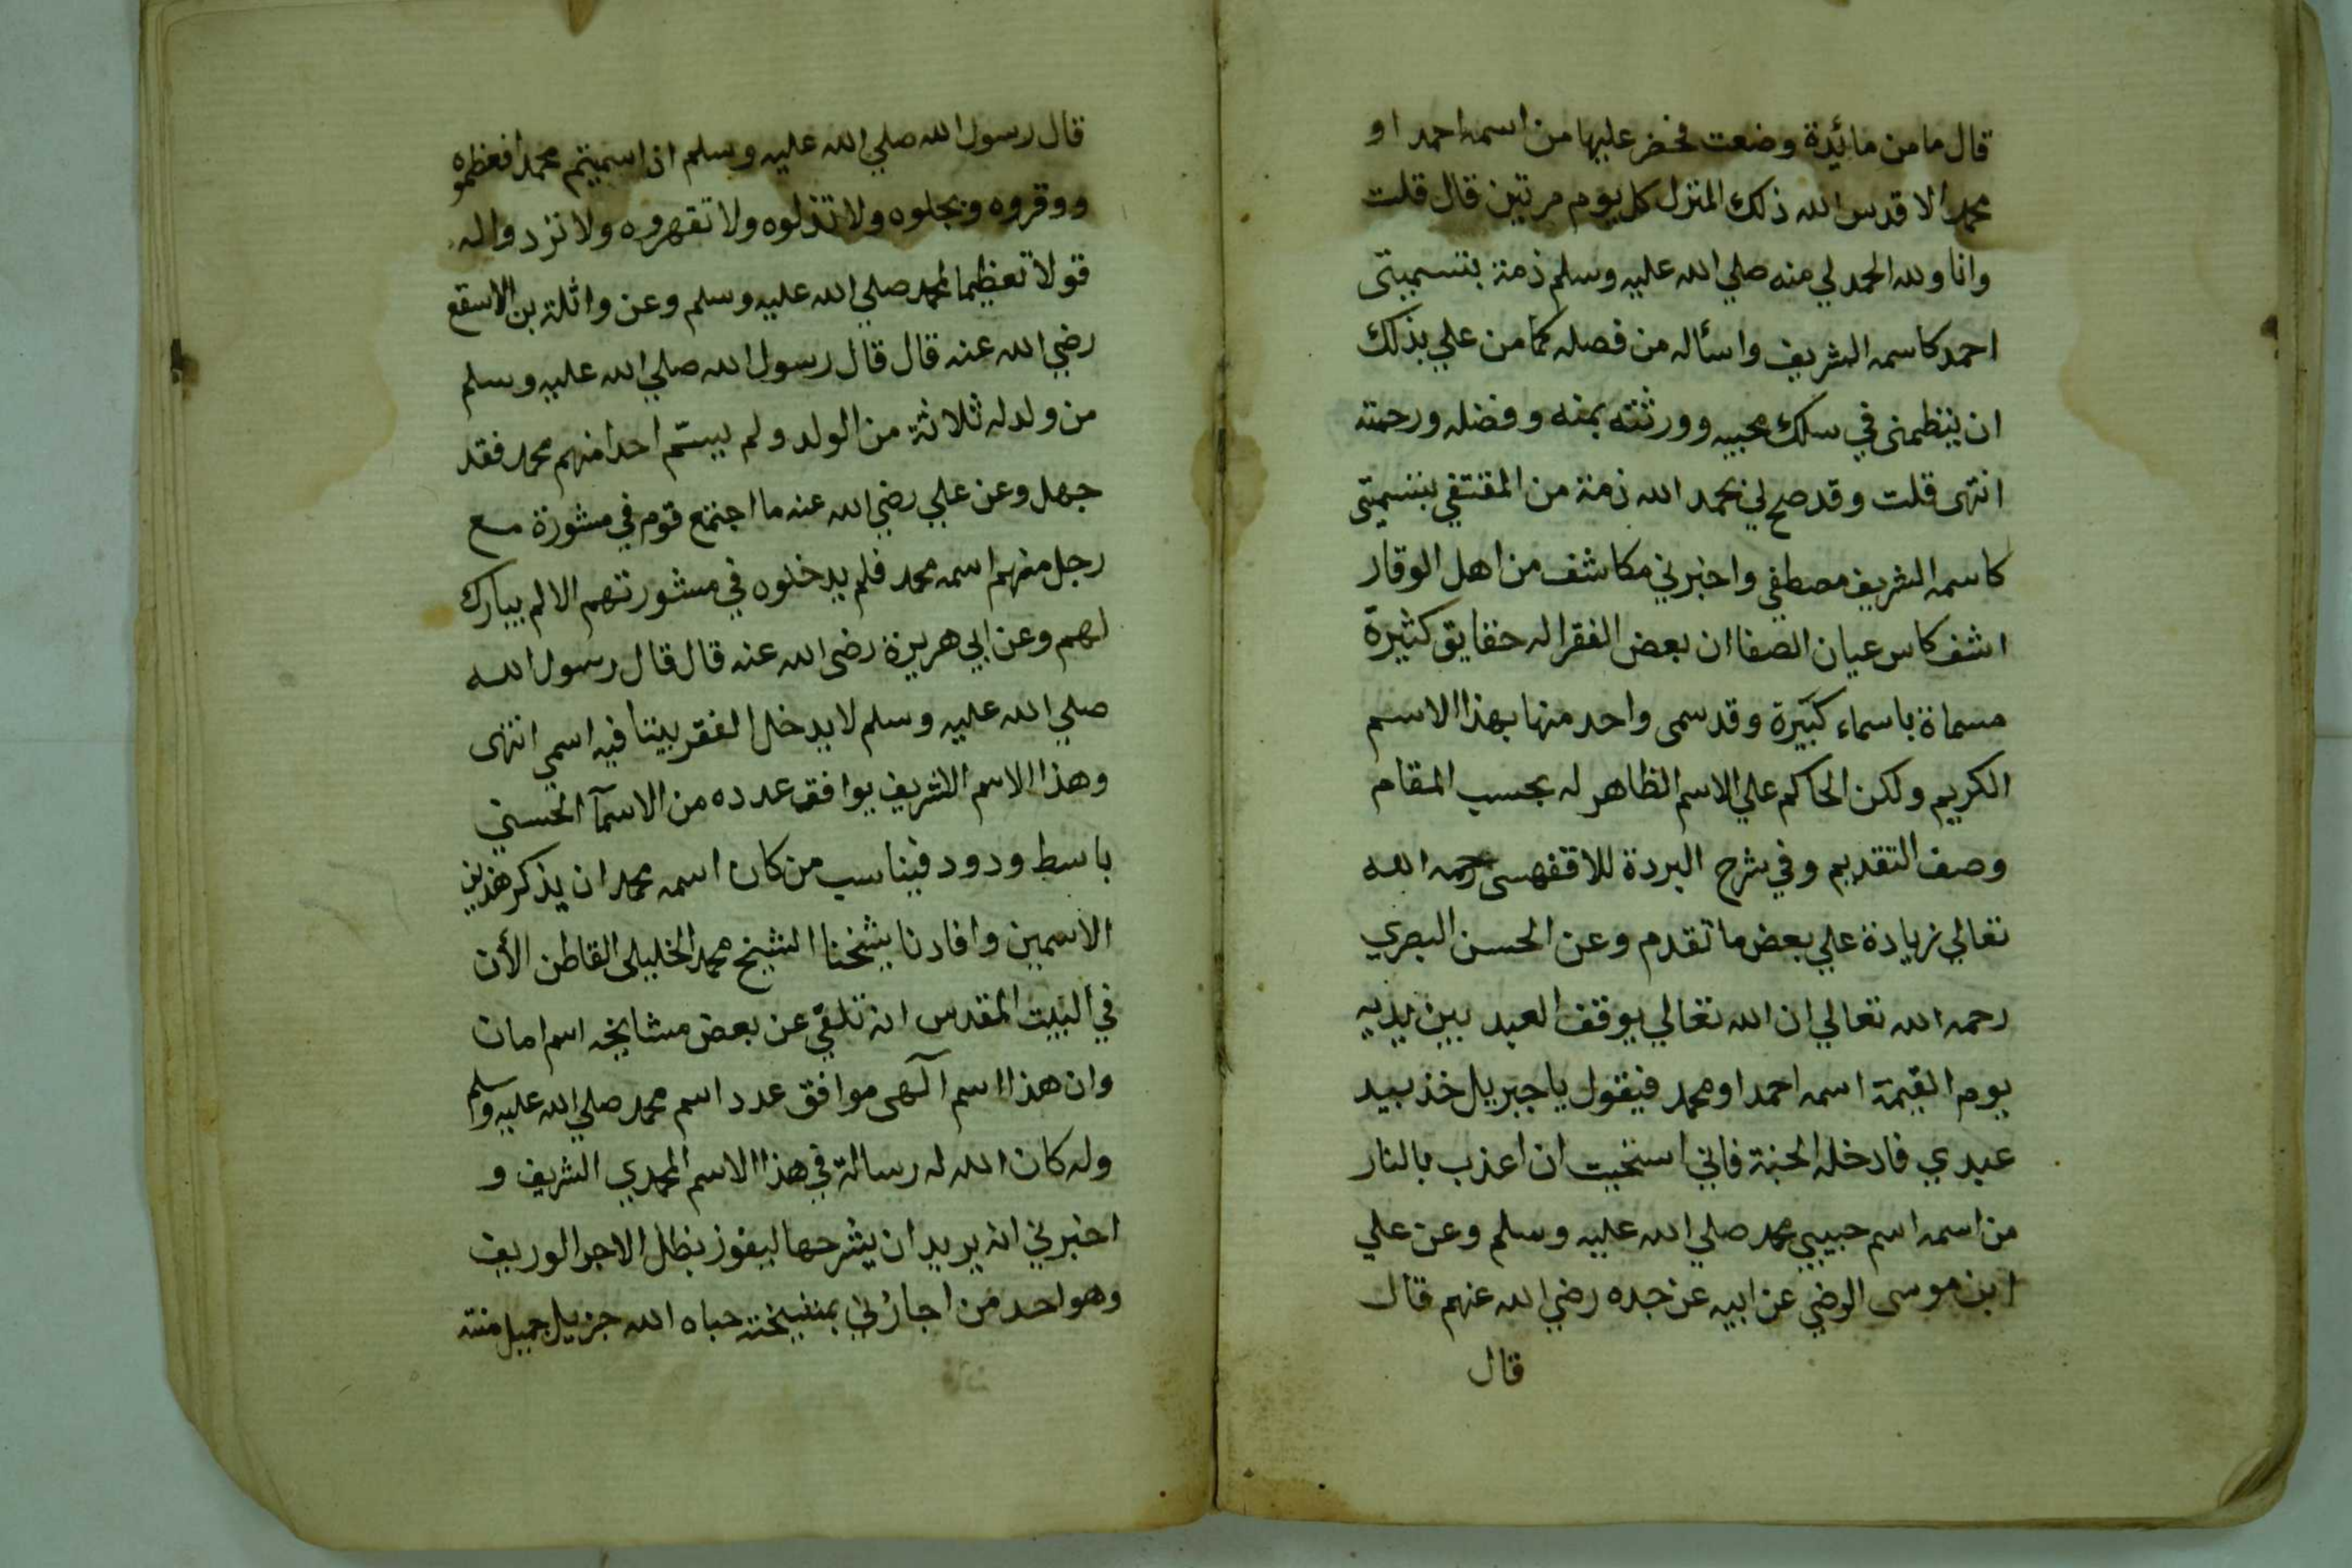 قال ما من مائدة وضعت فحضر عليها من اسمه احمد او
محمد الا قدس الله ذلك المنزل كل يوم مرتين قال قلت
وانا ولله الحمد لي منه صلي الله عليه وسلم ذمة بتسميتى
احمد كاسمه الشريف واسأله من فصله كما من علي بذلك
ان ينظمنى في سلك محبيه وورثته بمنه وفضله ورحمته
انتهى قلت وقد صح لي بحمد الله ذمة من المقتفي بتسميتى
كاسمه الشريف مصطفي واخبرني مكاشف من اهل الوقار
اشف كاس عيان الصفا ان بعض الفقرا له حقايق كثيرة
مسماة باسماء كبيرة وقد سمى واحد منها بهذا الاسم
الكريم ولكن الحاكم علي الاسم الظاهر له بحسب المقام
وصف التقديم وفي شرح البردة للاقفهسى رحمه الله
تعالي زيادة علي بعض ما تقدم وعن الحسن البصري
رحمه الله تعالي ان الله تعالي يوقف العبد بين يديه
يوم القيمة اسمه احمد او محمد فيقول يا جبريل خذ بيد
عبدي فادخله الجنة فاني استحيت ان اعذب بالنار
من اسمه اسم حبيبي محمد صلي الله عليه وسلم وعن علي
ابن موسى الرضي عن ابيه عن جده رضي الله عنهم قال
قال
قال رسول الله صلي الله عليه وسلم اذا سميتم محمدا فعظموه
ووقروه وبجلوه ولا تذلوه ولا تقهروه ولا تردوا له
قولا تعظيما لمحمد صلي الله عليه وسلم وعن واثلة بن الاسقع
رضي الله عنه قال قال رسول الله صلي الله عليه وسلم
من ولد له ثلاثة من الولد ولم يسمّ احدا منهم محمد فقد
جهل وعن علي رضي الله عنه ما اجتمع قوم في مشورة مع
رجل منهم اسمه محمد فلم يدخلوه في مشورتهم الا لم يبارك
لهم وعن ابي هريرة رضى الله عنه قال قال رسول الله
صلي الله عليه وسلم لا يدخل الفقر بيتا فيه اسمي انتهى
وهذا الاسم الشريف يوافق عدده من الاسمآ الحسني
باسط ودود فيناسب من كان اسمه محمد ان يذكر هذين
الاسمين وافادنا شيخنا الشيخ محمد الخليلى القاطن الأن
في البيت المقدس انه تلقي عن بعض مشايخه اسم امان
وان هذا اسم آلهى موافق عدد اسم محمد صلي الله عليه وسلم
وله كان الله له رسالة في هذا الاسم المحمدي الشريف و
اخبرني انه يريد ان يشرحها ليفوز بظل الاجر الوريف
وهو احد من اجازني بمشيخته حباه الله جزيل جميل منته